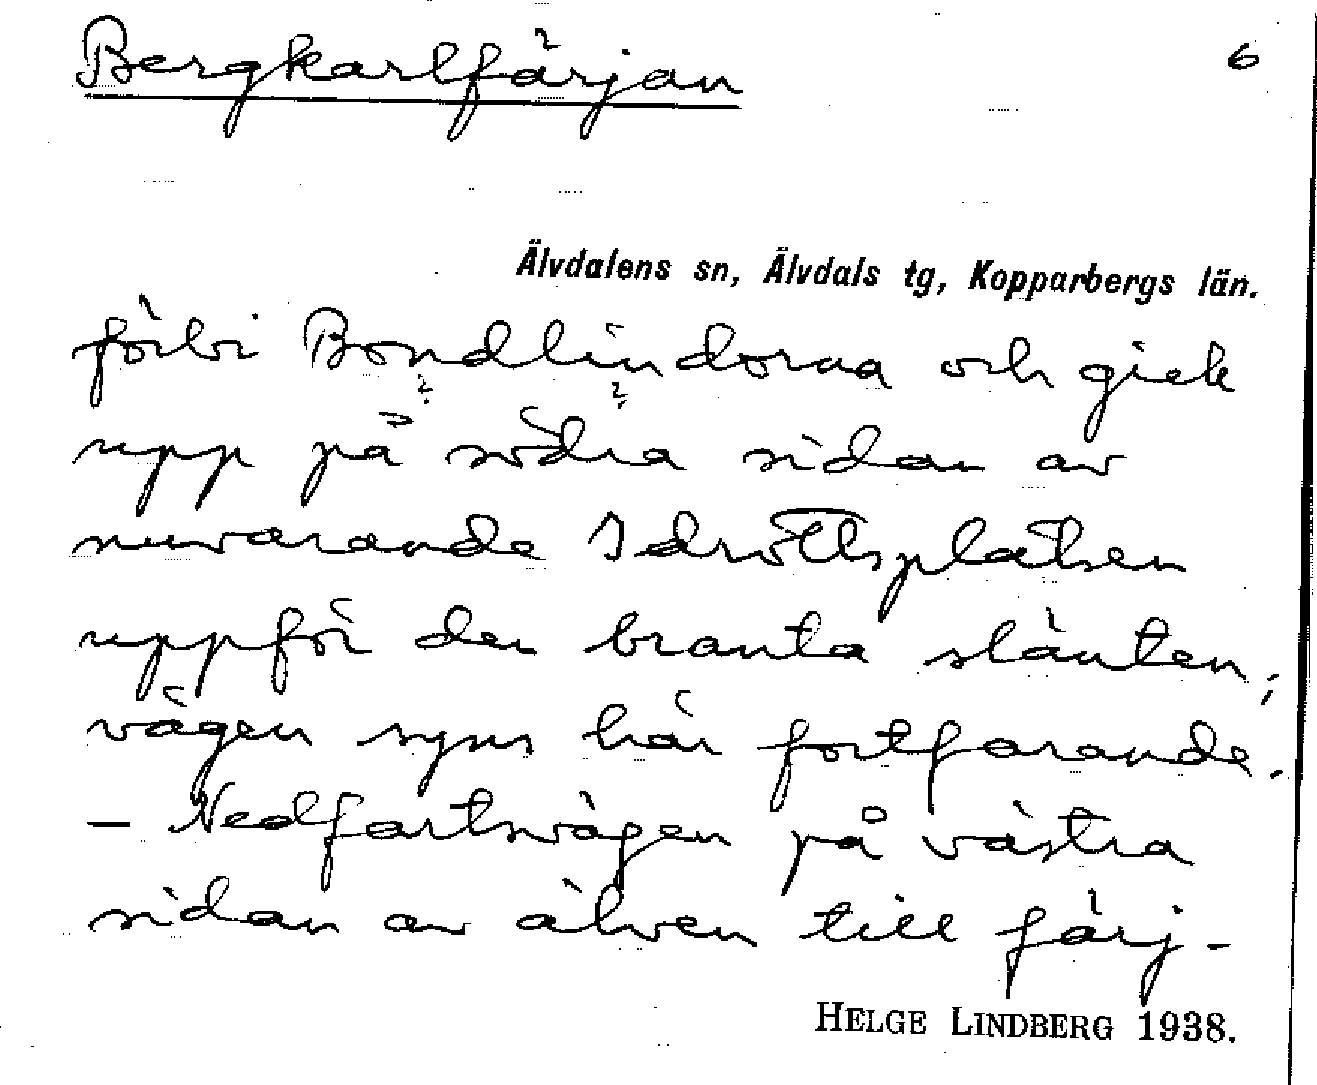 Bergkarlfärjan 6
Älvdalens sn, Älvdals tg, Kopparbergs län.
förbi Bondlindorna och gick
upp på södra sidan av
nuvarande Idrottsplatsen
uppför den branta slänten;
vägen syns här fortfarande.
– Nedfartsvägen på västra
sidan av älven till färj-
HELGE LINDBERG 1938.